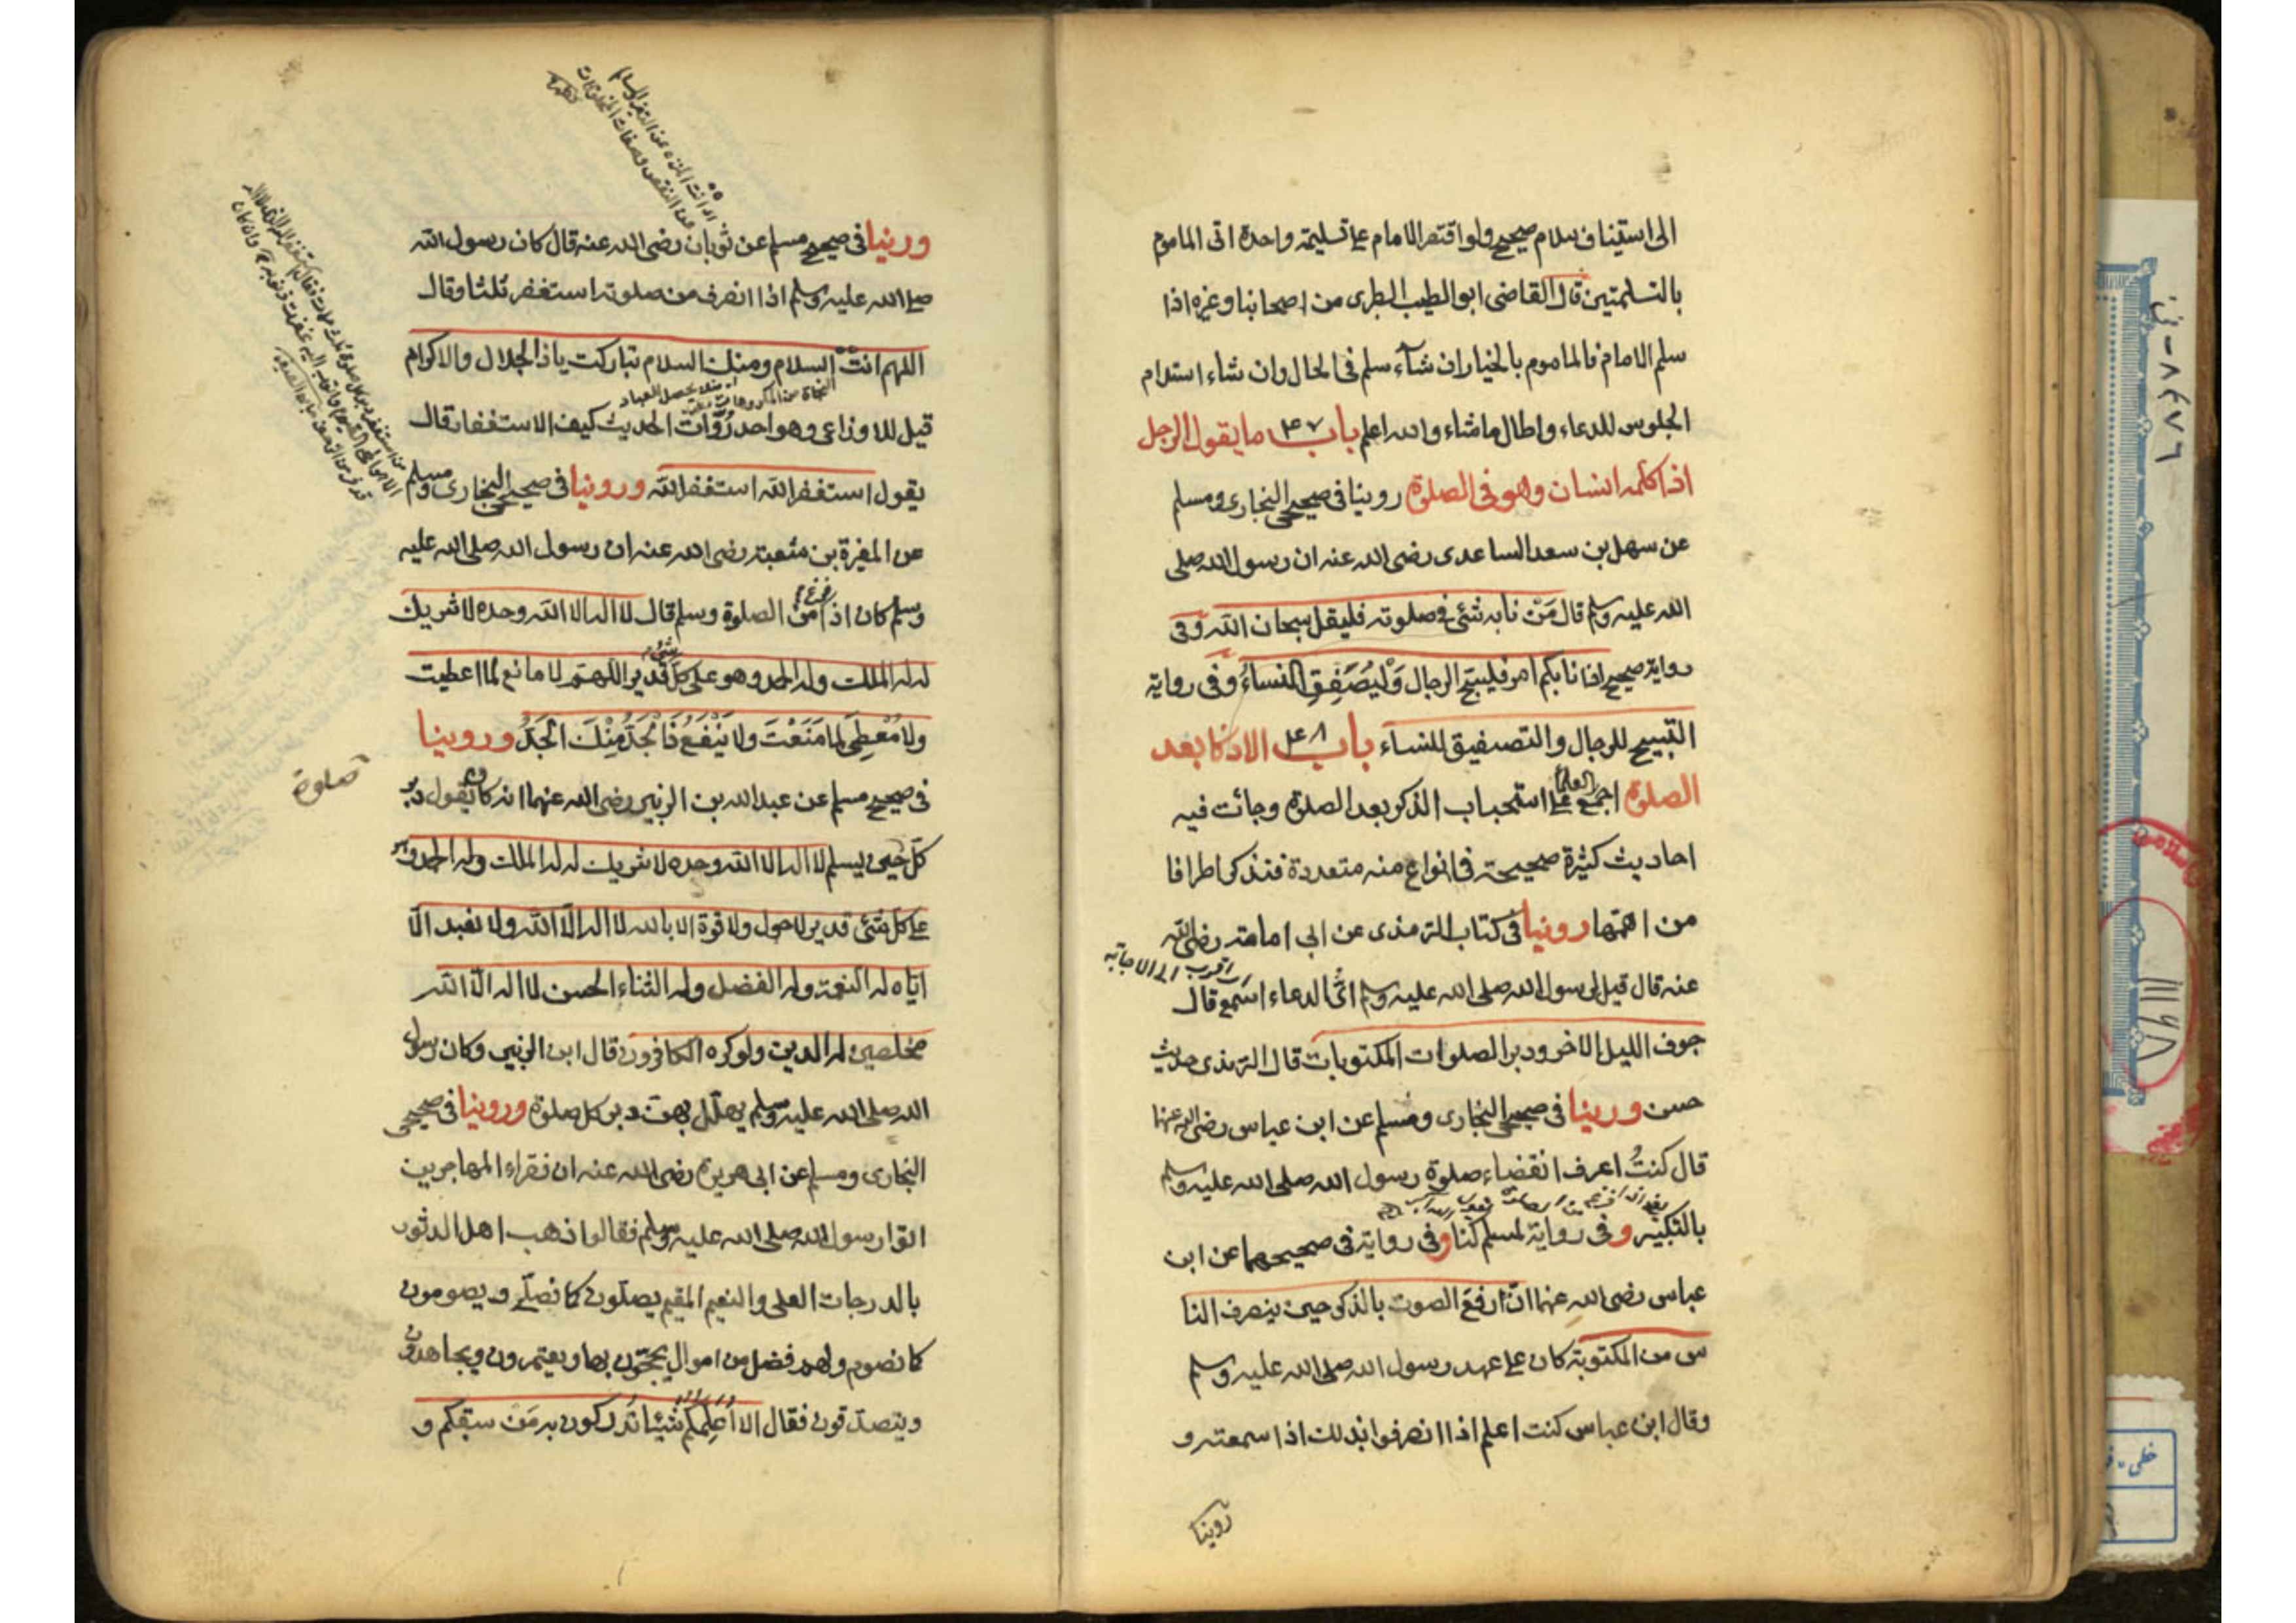 الى استيناف سلام صحيح ولو اقتصر الامام على تسليمة واحدة اتى الماموم
بالتسلمتين قال القاضى ابو الطيب الطبرى من اصحابنا وغيره اذا
سلم الامام فالماموم بالخيار ان شآء سلم فى الحال وان شاء استدام
الجلوس للدعاء واطال ماشاء والله اعلم باب ۴۷ ما يقول الرجل
اذا كلمه انسان وهو فى الصلوة روينا فى صحيحى البخارى ومسلم
عن سهل بن سعد الساعدى رضى الله عنه ان رسول الله صلى
الله عليه وسلم قال مَنْ نابه شئى فى صلوته فليقل سبحان الله وفى
رواية صحيح اذا نابكم امر فليسبح الرجال وَلْيُصَفِقِ النساءُ وفى رواية
التسبيح للرجال والتصفيق للنساء باب ۴۸ الاذكار بعد
الصلوة اجمع العلماء على استحباب الذكر بعد الصلوة وجائت فيه
احاديث كثيرة صحيحة فى انواع منه متعددة فنذكر اطرافا
من اهمها روينا فى كتاب الترمذى عن ابى امامة رضى الله
اى اقرب الى الاجابة
عنه قال قيل لرسول الله صلى الله عليه وسلم اىّ الدعاء اسمع قال
جوف الليل الاخر ودبر الصلوات المكتوبات قال الترمذى حديث
حسن وروينا فى صحيحى البخارى ومسلم عن ابن عباس رضى الله عنهما
قال كنتُ اعرف انقضاء صلوة رسول الله صلى الله عليه وسلم
بالتكبير وفى رواية لمسلم كنا وفى رواية فى صحيحهما عن ابن
عباس رضى الله عنهما انّ رفع الصوت بالذكر حين ينصرف النا
س من المكتوبة كان على عهد رسول الله صلى الله عليه وسلم
وقال ابن عباس كنت اعلم اذا انصرفوا بذلك اذا سمعته و
روينا
وروينا فى صحيح مسلم عن ثوبان رضى الله عنه قال كان رسول الله
صلى الله عليه وسلم اذا انصرف من صلوته استغفر ثلثا وقال
اللهم انت السلام ومنك السلام تباركت ياذا الجلال والاكرام
قيل للاوزاعى وهو احد رُوّات الحديث كيف الاستغفار قال
يقول استغفر الله استغفر الله وروينا فى صحيحى البخارى ومسلم
عن المغيرة بن شعبة رضى الله عنه ان رسول الله صلى الله عليه
وسلم كان اذا فرغ من الصلوة وسلم قال لا اله الا الله وحده لا شريك
له له الملك وله الحمد وهو على كل شئ قدير اللهم لا مانع لما اعطيت
ولا مُعْطِىَ لما مَنَعْتَ ولا يَنْفَعُ ذَا الجَدِّ مِنْكَ الجَدُّ وروينا
فى صحيح مسلم عن عبدالله بن الزبير رضى الله عنهما انه كان يقول دبر
صلوة
كلّ حين يسلم لا اله الا الله وحده لا شريك له له الملك وله الحمد وهو
على كل شئى قدير لا حول ولا قوة الا بالله لا اله الّا الله ولا نعبد الّا
اياه له النعمة وله الفضل وله الثناء الحسن لا اله الّا الله
مخلصين له الدين ولو كره الكافرون قال ابن الزبير وكان رسول
الله صلى الله عليه وسلم يهلّل بهن دبر كل صلوة وروينا فى صحيحى
البخارى ومسلم عن ابى هريرة رضى الله عنه ان فقراء المهاجرين
اتوا رسول الله صلى الله عليه وسلم فقالوا ذهب اهل الدثور
بالدرجات العلى والنعيم المقيم يصلّون كما نصلّى ويصومون
كما نصوم ولهم فضل من اموال يحجّون بها ويعتمرون ويجاهدون
ويتصدقون فقال الا اُعلِّمكم شيئا تدركون به مَن سبقكم و